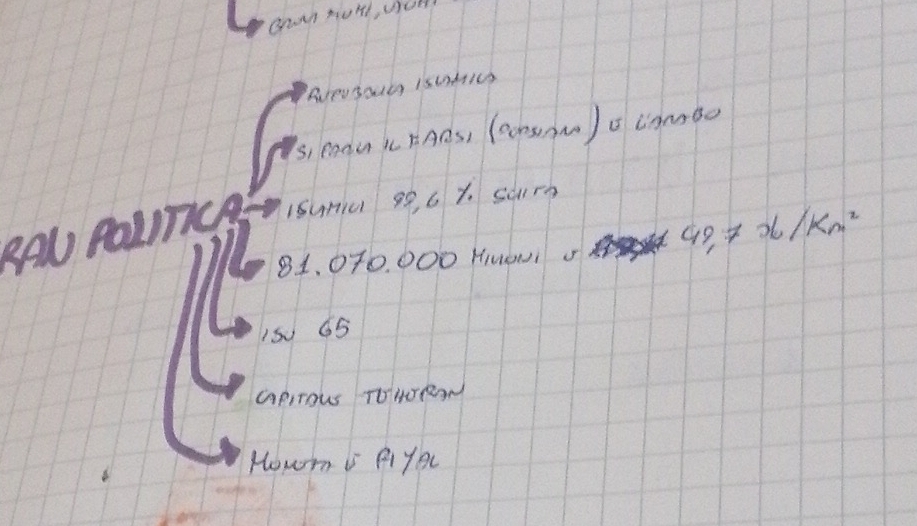 REPUBBLICA ISLAMICA
SI PARLA IL FARSI (PERSIANO) E L'ARABO
IRAN POLITICA
ISLAMICI 99,6 % SCIITA
81.070.000 MILIONI E 49,7 ab/Km²
ISU 65
CAPITALE TEHERAN
MONETA È RIYAL